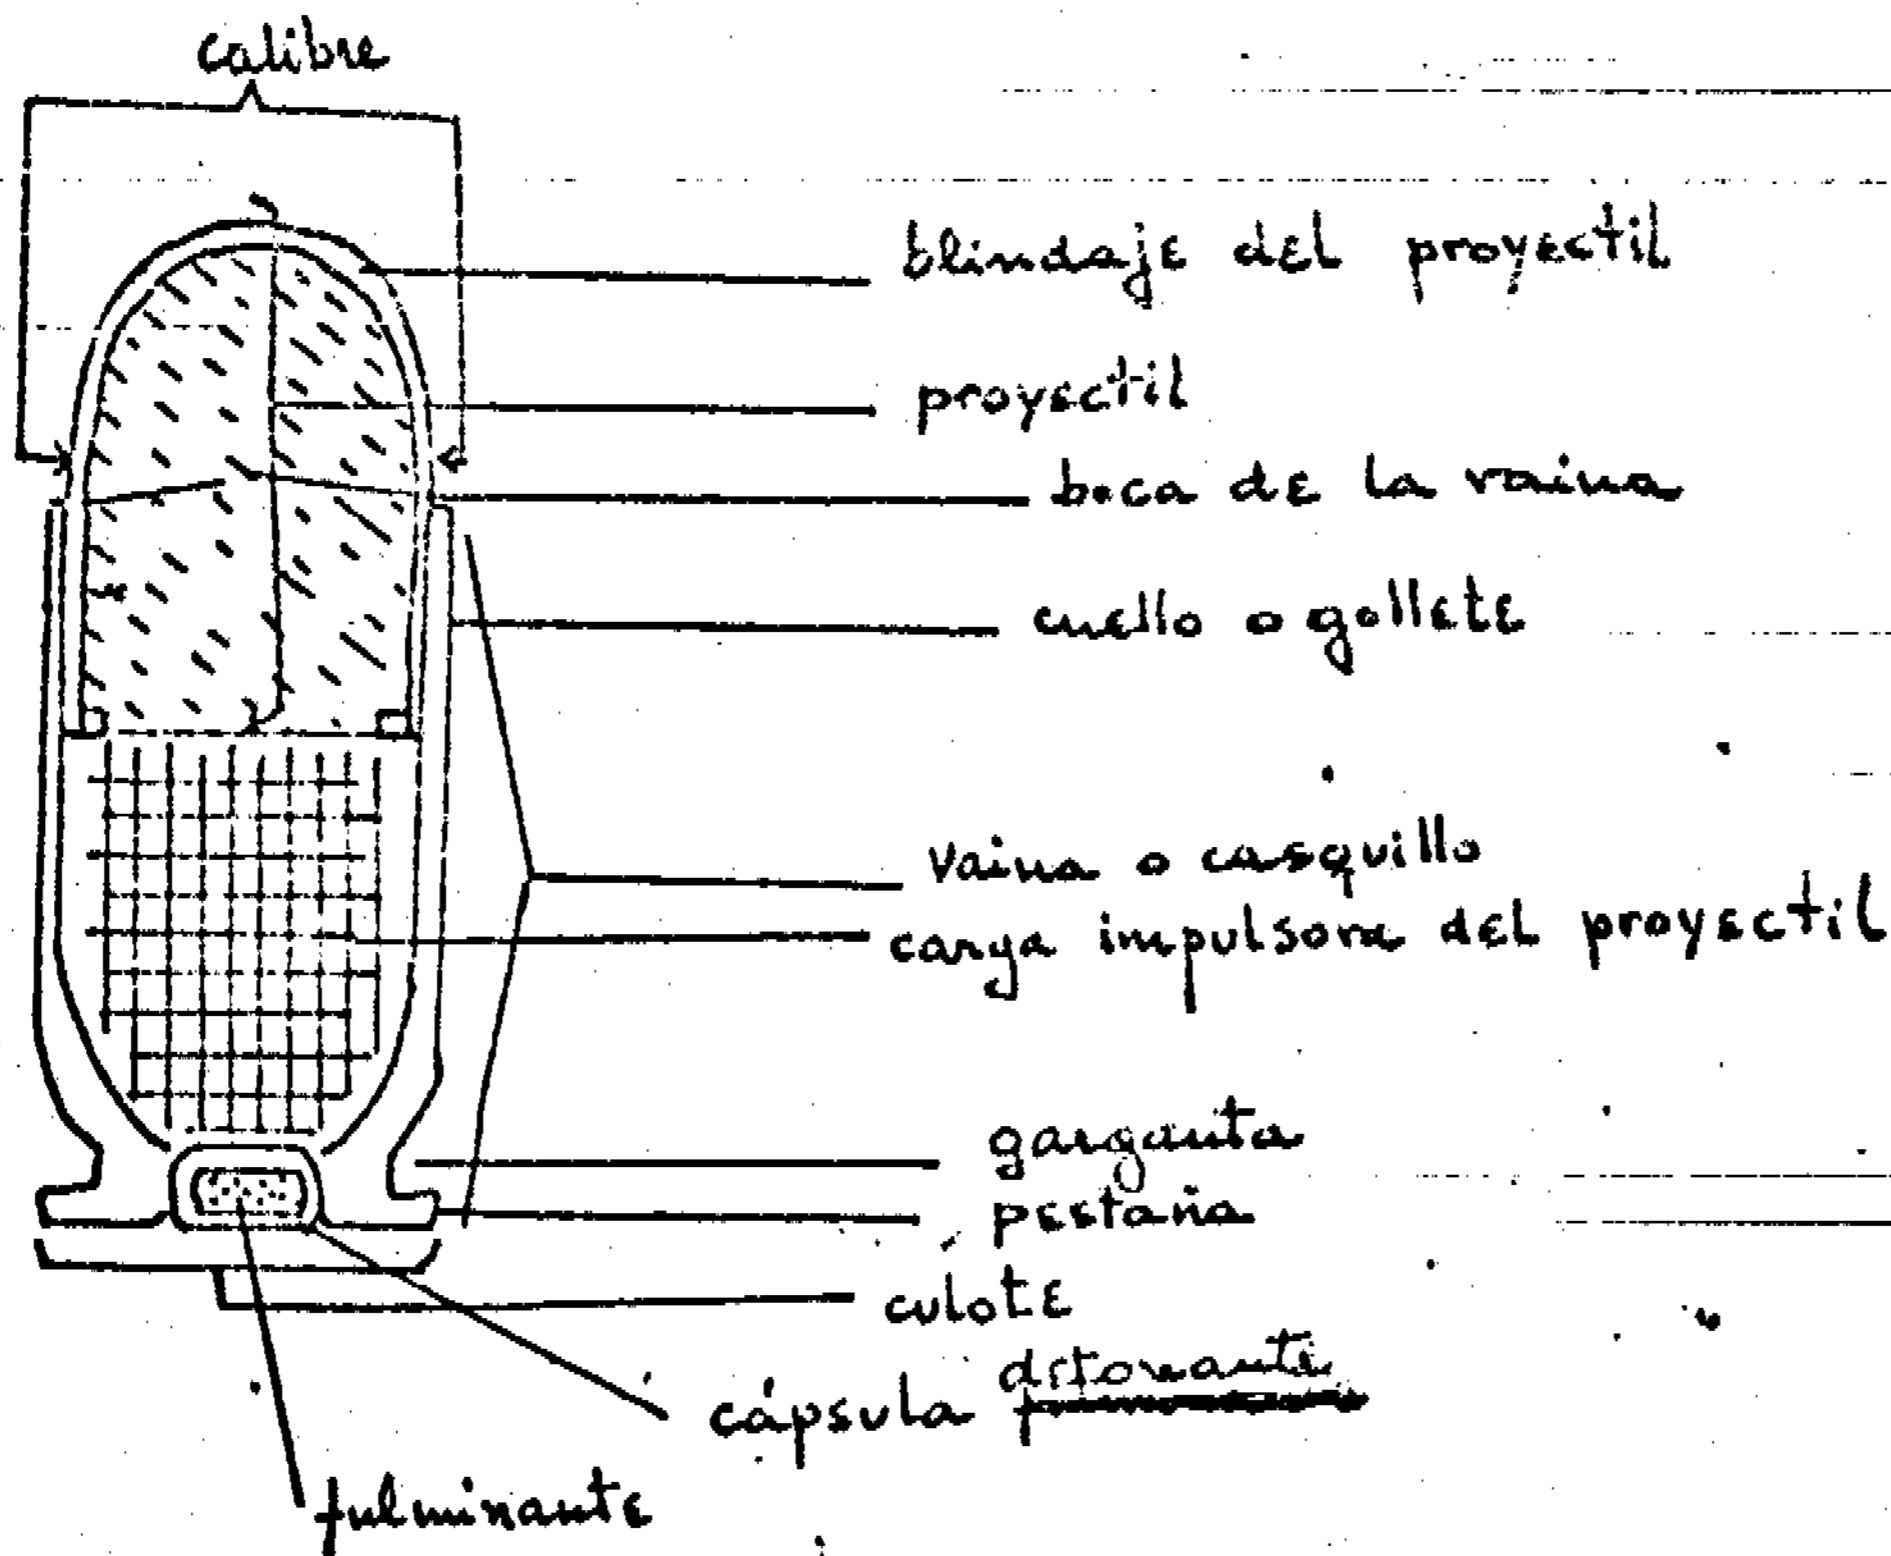 calibre
blindaje del proyectil
proyectil
boca de la vaina
cuello o gollete
vaina o casquillo
carga impulsora del proyectil
garganta
pestaña
culote
detonante
cápsula
fulminante